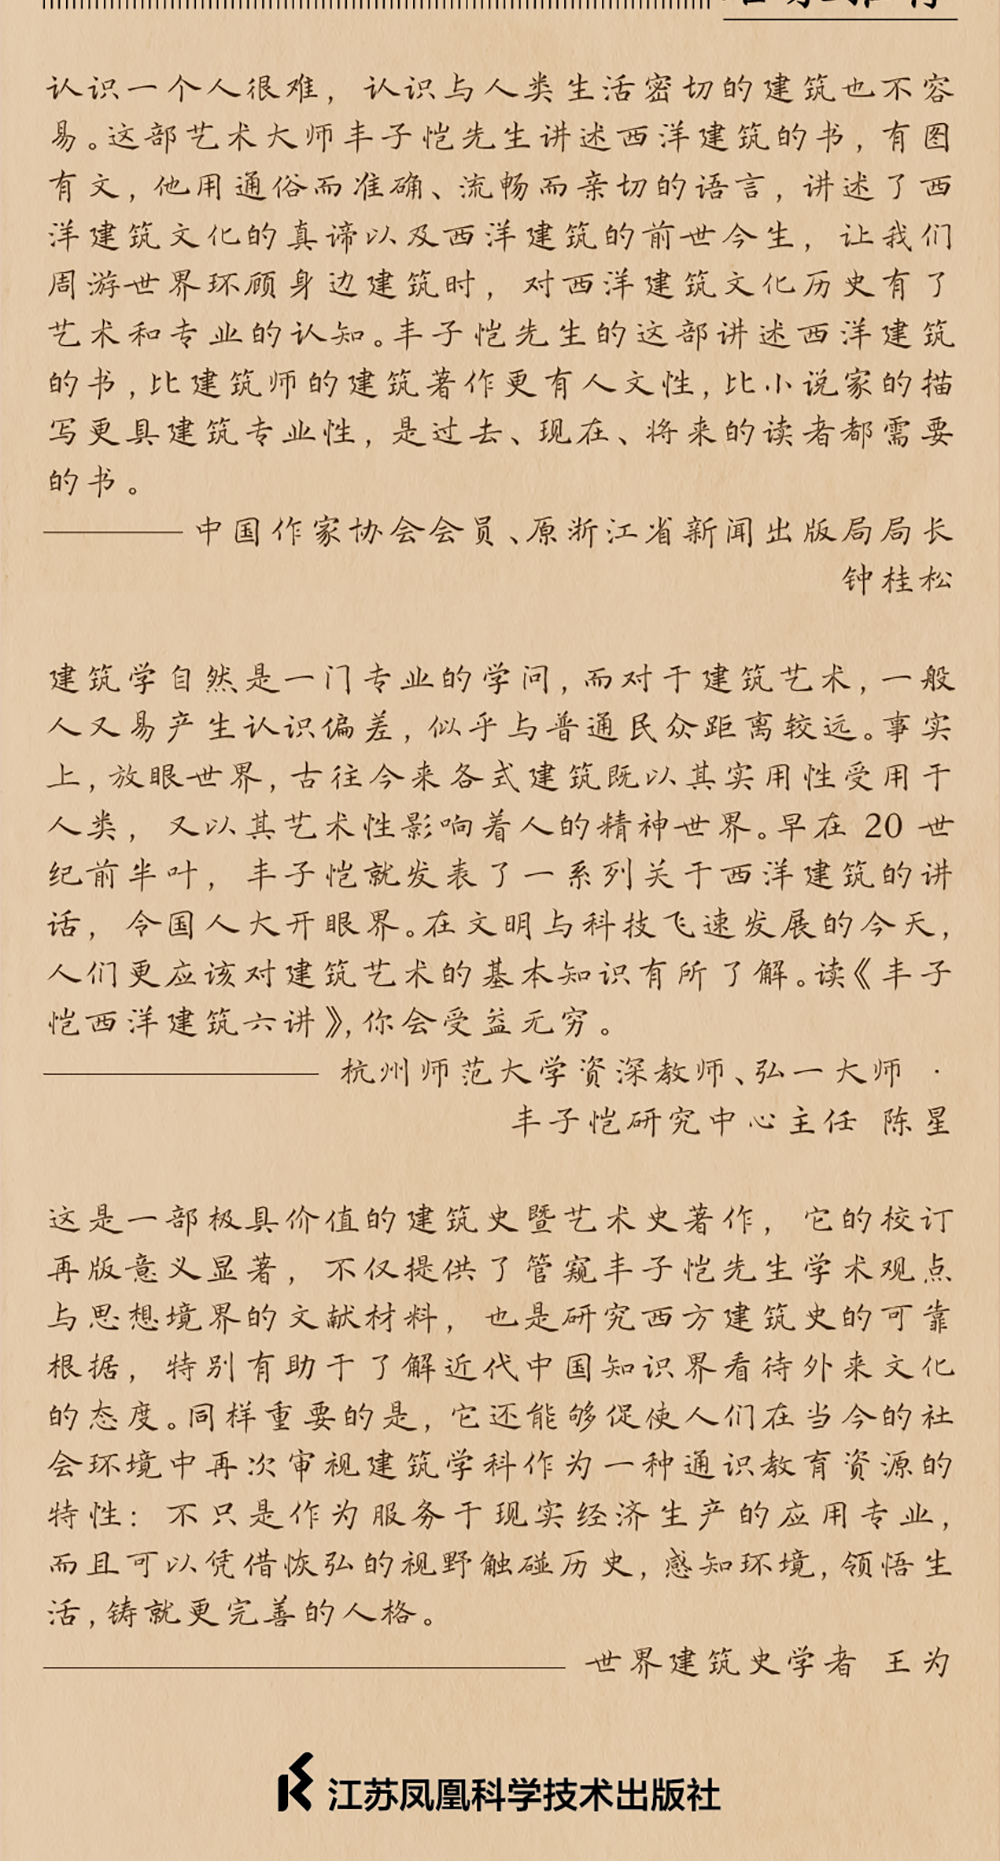 认识一个人很难，认识与人类生活密切的建筑也不容
易。这部艺术大师丰子恺先生讲述西洋建筑的书，有图
有文，他用通俗而准确、流畅而亲切的语言，讲述了西
洋建筑文化的真谛以及西洋建筑的前世今生，让我们
周游世界环顾身边建筑时，对西洋建筑文化历史有了
艺术和专业的认知。丰子恺先生的这部讲述西洋建筑
的书，比建筑师的建筑著作更有人文性，比小说家的描
写更具建筑专业性，是过去、现在、将来的读者都需要
的书。
中国作家协会会员、原浙江省新闻出版局局长
钟桂松
建筑学自然是一门专业的学问，而对于建筑艺术，一般
人又易产生认识偏差，似乎与普通民众距离较远。事实
上，放眼世界，古往今来各式建筑既以其实用性受用于
人类，又以其艺术性影响着人的精神世界。早在 20 世
纪前半叶，丰子恺就发表了一系列关于西洋建筑的讲
话，令国人大开眼界。在文明与科技飞速发展的今天，
人们更应该对建筑艺术的基本知识有所了解。读《丰子
恺西洋建筑六讲》，你会受益无穷。
杭州师范大学资深教师、弘一大师 ·
丰子恺研究中心主任 陈星
这是一部极具价值的建筑史暨艺术史著作，它的校订
再版意义显著，不仅提供了管窥丰子恺先生学术观点
与思想境界的文献材料，也是研究西方建筑史的可靠
根据，特别有助于了解近代中国知识界看待外来文化
的态度。同样重要的是，它还能够促使人们在当今的社
会环境中再次审视建筑学科作为一种通识教育资源的
特性：不只是作为服务于现实经济生产的应用专业，
而且可以凭借恢弘的视野触碰历史，感知环境，领悟生
活，铸就更完善的人格。
世界建筑史学者 王为
江苏凤凰科学技术出版社